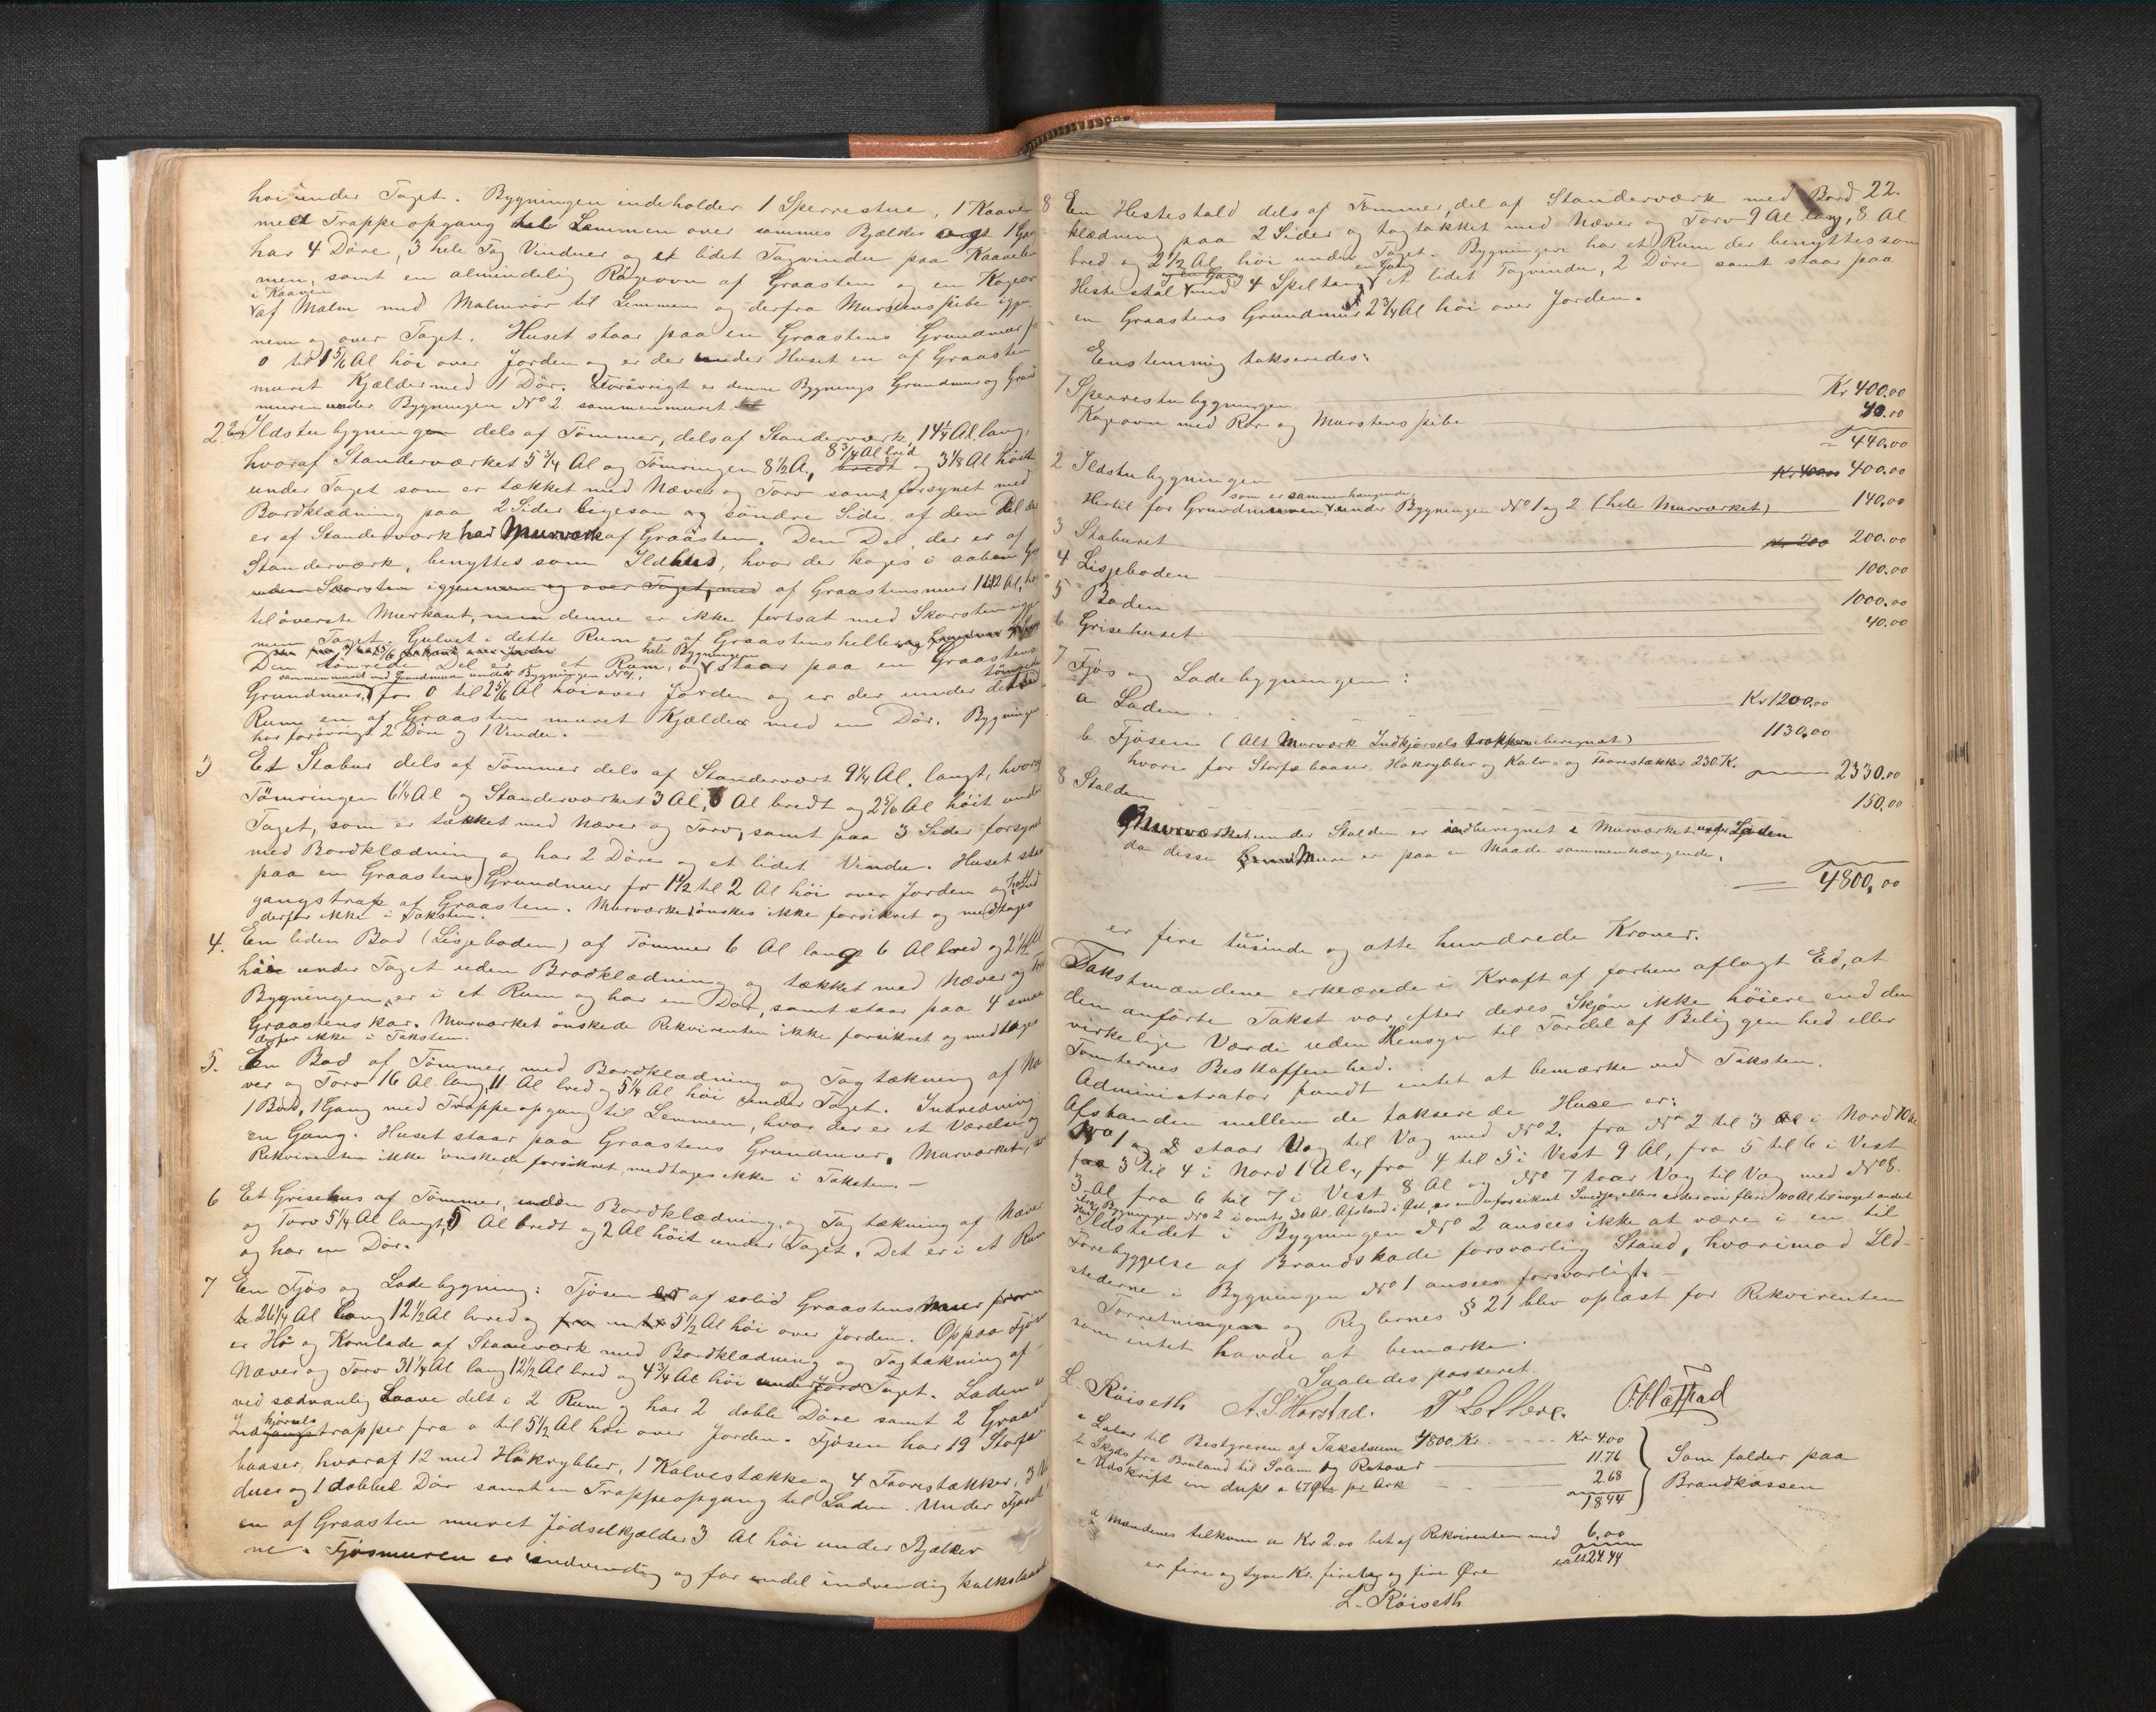 høi under Taget. Bygningen indeholder 1 Sperrestue, 1 Kaave
med Trappeopgang hele Lemmen over sammes Bjælker og 1 Gan
har 4 Døre, 3 hele Fag Vinduer og et lidet Fagvindu paa Kaavelem
men, samt en almindelig Røgeovn af Graasten og en Kogeov
i Kaaven
af Malm med Malmrør til Lemmen og derfra Murstenspibe igjen
nem og over Taget. Huset staar paa en Graastens Grundmur f
0 til 1 5/6 Al høi over Jorden og er der under Huset en af Graasten
muret Kjælder med 1 Dør. Forøvrigt er denne Bygnings Grundmur og Grund
muren under Bygningen No 2 sammenmuret
2. En Ildstubygning dels af Tømmer, dels af Standerværk, 14 1/4 Al. lang,
8 3/4 Al bred
hvoraf Standerværket 5 3/4 Al og Tømringen 8 1/2 Al, bredt og 3 1/8 Al høit
under Taget som er tækket med Næver og Torv samt forsynet med
Bordklædning paa 2 Sider ligesom og søndre Side af den Del der
er af Standerværk har Murværk af Graasten. Den Del, der er af
Standerværk, benyttes som Ildhus, hvor der koges i aaben
uden Skorsten igjennem og over Taget, med af Graastensmur
til øverste Murkant, men denne er ikke fortsat med Skorsten igjen
nem Taget. Gulvet i dette Rum er af Graastensheller og Grundmur
hele Bygningen
Den tømrede Del er i et Rum, og staar paa en Graastens
sammenmuret med Grundmuren under Bygningen No 1, tømrede
Grundmur, for 0 til 2 5/6 Al høi over Jorden og er der under dette
Rum en af Graasten muret Kjælder med en Dør. Bygningen
har forøvrigt 2 Døre og 1 Vindu.
3 Et Stabur dels af Tømmer dels af Standerværk 9 1/4 Al. langt, hvoraf
Tømringen 6 1/4 Al og Standerværket 3 Al, 6 Al bredt og 2 5/6 Al høit under
Taget, som er tækket med Næver og Torv, samt paa 3 Sider forsynet
med Bordklædning og har 2 Døre og et lidet Vindu. Huset staa
paa en Graastens Grundmur for 1 1/2 til 2 Al høi over Jorden og har Ind
gangstrap af Graasten. Murværket ønskes ikke forsikret og medtages
derfor ikke i Taksten.
4. En liden Bod (Lisjeboden) af Tømmer 6 Al lang 6 Al bred og 2 1/2 Al
høi under Taget uden Bordklædning og tækket med Næver og Torv
Bygningen er i et Rum og har en Dør, samt staar paa 4 smaa
Graastenskar. Murværket ønskede Rekvirenten ikke forsikret og medtages
derfor ikke i Taksten.
5. En Bod af Tømmer med Bordklædning og Tagtækning af Næ
ver og Torv 16 Al. lang, 11 Al bred og 5 1/4 Al høi under Taget. Indredning:
1 Bod, 1 Gang med Trappeopgang til Lemmen, hvor der er et Værelse og
en Gang. Huset staar paa Graastens Grundmur. Murværket,
Rekvirenten ikke ønskede forsikret, medtages ikke i Taksten. —
6 Et Grisehus af Tømmer, uden Bordklædning, og Tagtækning af Næver
og Torv 5 1/4 Al langt, 5 Al bredt og 2 Al høit under Taget. Det er i et Rum
og har en Dør.
7 En Fjøs og Ladebygning: Fjøsen er af solid Graastensmur
26 1/4 Al lang 12 1/2 Al bred og fra 5 1/2 Al høi over Jorden. Oppaa Fjøse
er Hø og Kornlade af Stavværk med Bordklædning og Tagtækning af
Næver og Torv 31 1/4 Al lang 12 1/2 Al bred og 4 3/4 Al høi under Taget. Laden
ved sædvanlig Laave delt i 2 Rum og har 2 doble Døre samt 2 Graast
kjørsels
Indgangstrapper fra 0 til 5 1/2 Al høi over Jorden. Fjøsen har 19 Storfæ
baaser, hvoraf 12 med Høkrybber, 1 Kalvestække og 4 Faarestækker, 3 Vi
duer og 1 dobbel Dør samt en Trappeopgang til Laden. Under Fjøset
en af Graasten muret Jødselkjælder 3 Al høi under Bjælker
ne. Fjøsmuren er indvendig og for endel indvendig kalkslaaet
22.
8 En Hestestald dels af Tømmer, del af Standerværk med Bord
klædning paa 2 Sider og tagtækket med Næver og Torv 9 Al lang, 8 Al
bred og 2 1/2 Al høi under Taget. Bygningen har et Rum der benyttes som
og en Gang en Gang
Hestestal med 4 Speltang et lidet Fagvindu, 2 Døre samt staar paa
en Graastens Grundmur 2 3/4 Al høi over Jorden.
Enstemmig takseredes:
1 Sperrestubygningen Kr 400.00
Kogeovn med Rør og Murstenspibe 40.00
= 440.00
2 Ildstubygningen Kr 400.00 400.00
som er sammenhængende,
Hertil for Grundmuren under Bygningen No 1 og 2 (hele Murværket) 140.00
3 Staburet Kr 200 200.00
4 Lisjeboden 100.00
5 Boden 1000.00
6 Grisehuset 40.00
7 Fjøs og Ladebygningen:
a Laden Kr 1200.00
b Fjøsen (Alt Murværk Indkjørsels trapper iberegnet) 1130.00
hvori for Storfæbaaser, Høkrybber og Kalve- og Faarestækker 230 K. 2330.00
8 Stalden 150.00
Murværket under Stalden er indberegnet i Murværket under Laden
da disse Grund Mure er paa en Maade sammenhængende.
4800,00
er fire tusinde og otte hundrede Kroner.
Takstmændene erklærede i Kraft af forhen aflagt Ed, at
den anførte Takst var efter deres Skjøn ikke høiere end den
virkelige Værdi uden Hensyn til Fordel af Beliggenhed eller
Tomternes Beskaffenhed.
Administrator fandt intet at bemærke ved Taksten.
Afstanden mellem de takserede Huse er:
No 1 og 2 staar Væg til Væg med No 2. fra No 2 til 3 i Nord 10 Al
fra 3 til 4 i Nord 1 Al., fra 4 til 5 i Vest 9 Al, fra 5 til 6 i Vest
3 Al fra 6 til 7 i Vest 8 Al og No 7 staar Væg til Væg med No 8.
Fra Bygningen No 2 i omtr. 30 Al. Afstand i Øst, er en uforsikret Smidje, ellers er der over flere 100 Al til noget andet
Hus.
Ildstedet i Bygningen No 2 ansees ikke at være i en til
Forebyggelse af Brandskade forsvarlig Stand, hvorimod Ild-
stederne i Bygningen No 1 ansees forsvarligt. —
Forretningen og Reglernes § 21 blev oplæst for Rekvirenten
som intet havde at bemærke.
Saaledes passeret.
L. Röiseth A. S. Horstad. T Lellere.
a Salær til Bestyreren af Takstsum 4800 Kr. Kr 4.00
b Skyds fra Bruland til Solem og Retour 11.76
c Udskrift in dupl a 67 Øre pr Ark 2.68
18 44
Som falder paa
Brandkassen
Mændenes tilkom a Kr 2.00 bet af Rekvirenten med 6,00
ialt 24.44
er fire og tyve Kr. fireti og fire Øre
L. Röiseth